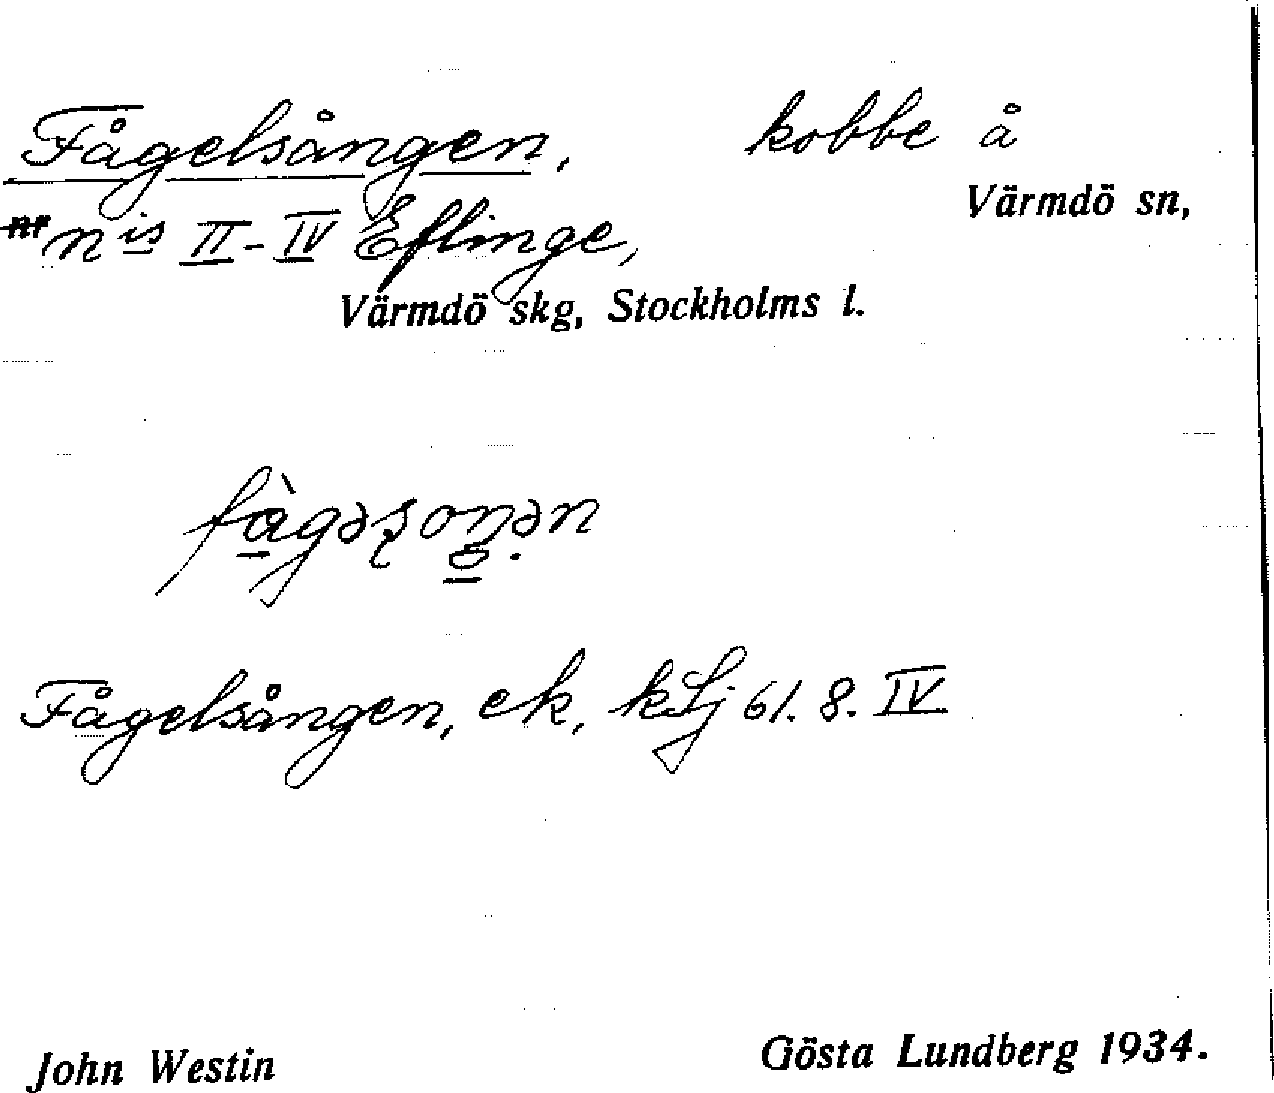 Fågelsången, kobbe å
Värmdö sn,
nis II-IV Eflinge,
Värmdö skg, Stockholms l.
Fågelsången, ek, kLj 61. 8. IV
John Westin Gösta Lundberg 1934.